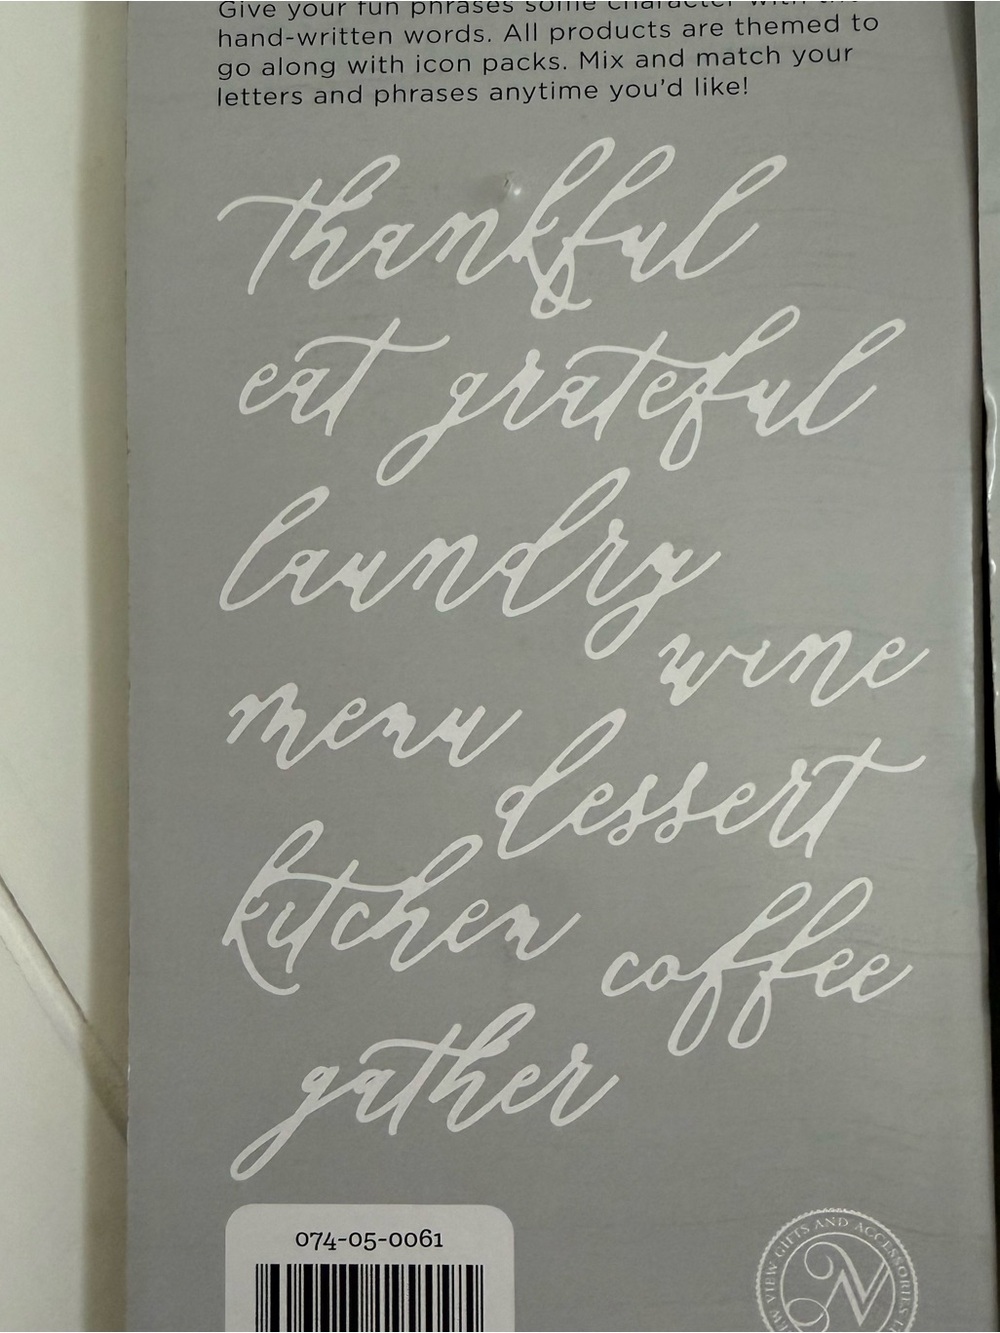 Give your fun phrases some character with the
hand-written words. All products are themed to
go along with icon packs. Mix and match your
letters and phrases anytime you'd like!
thankful
eat grateful
laundry
wine
menu
dessert
kitchen
coffee
gather
074-05-0061
NEW VIEW GIFTS AND ACCESSORIES
N